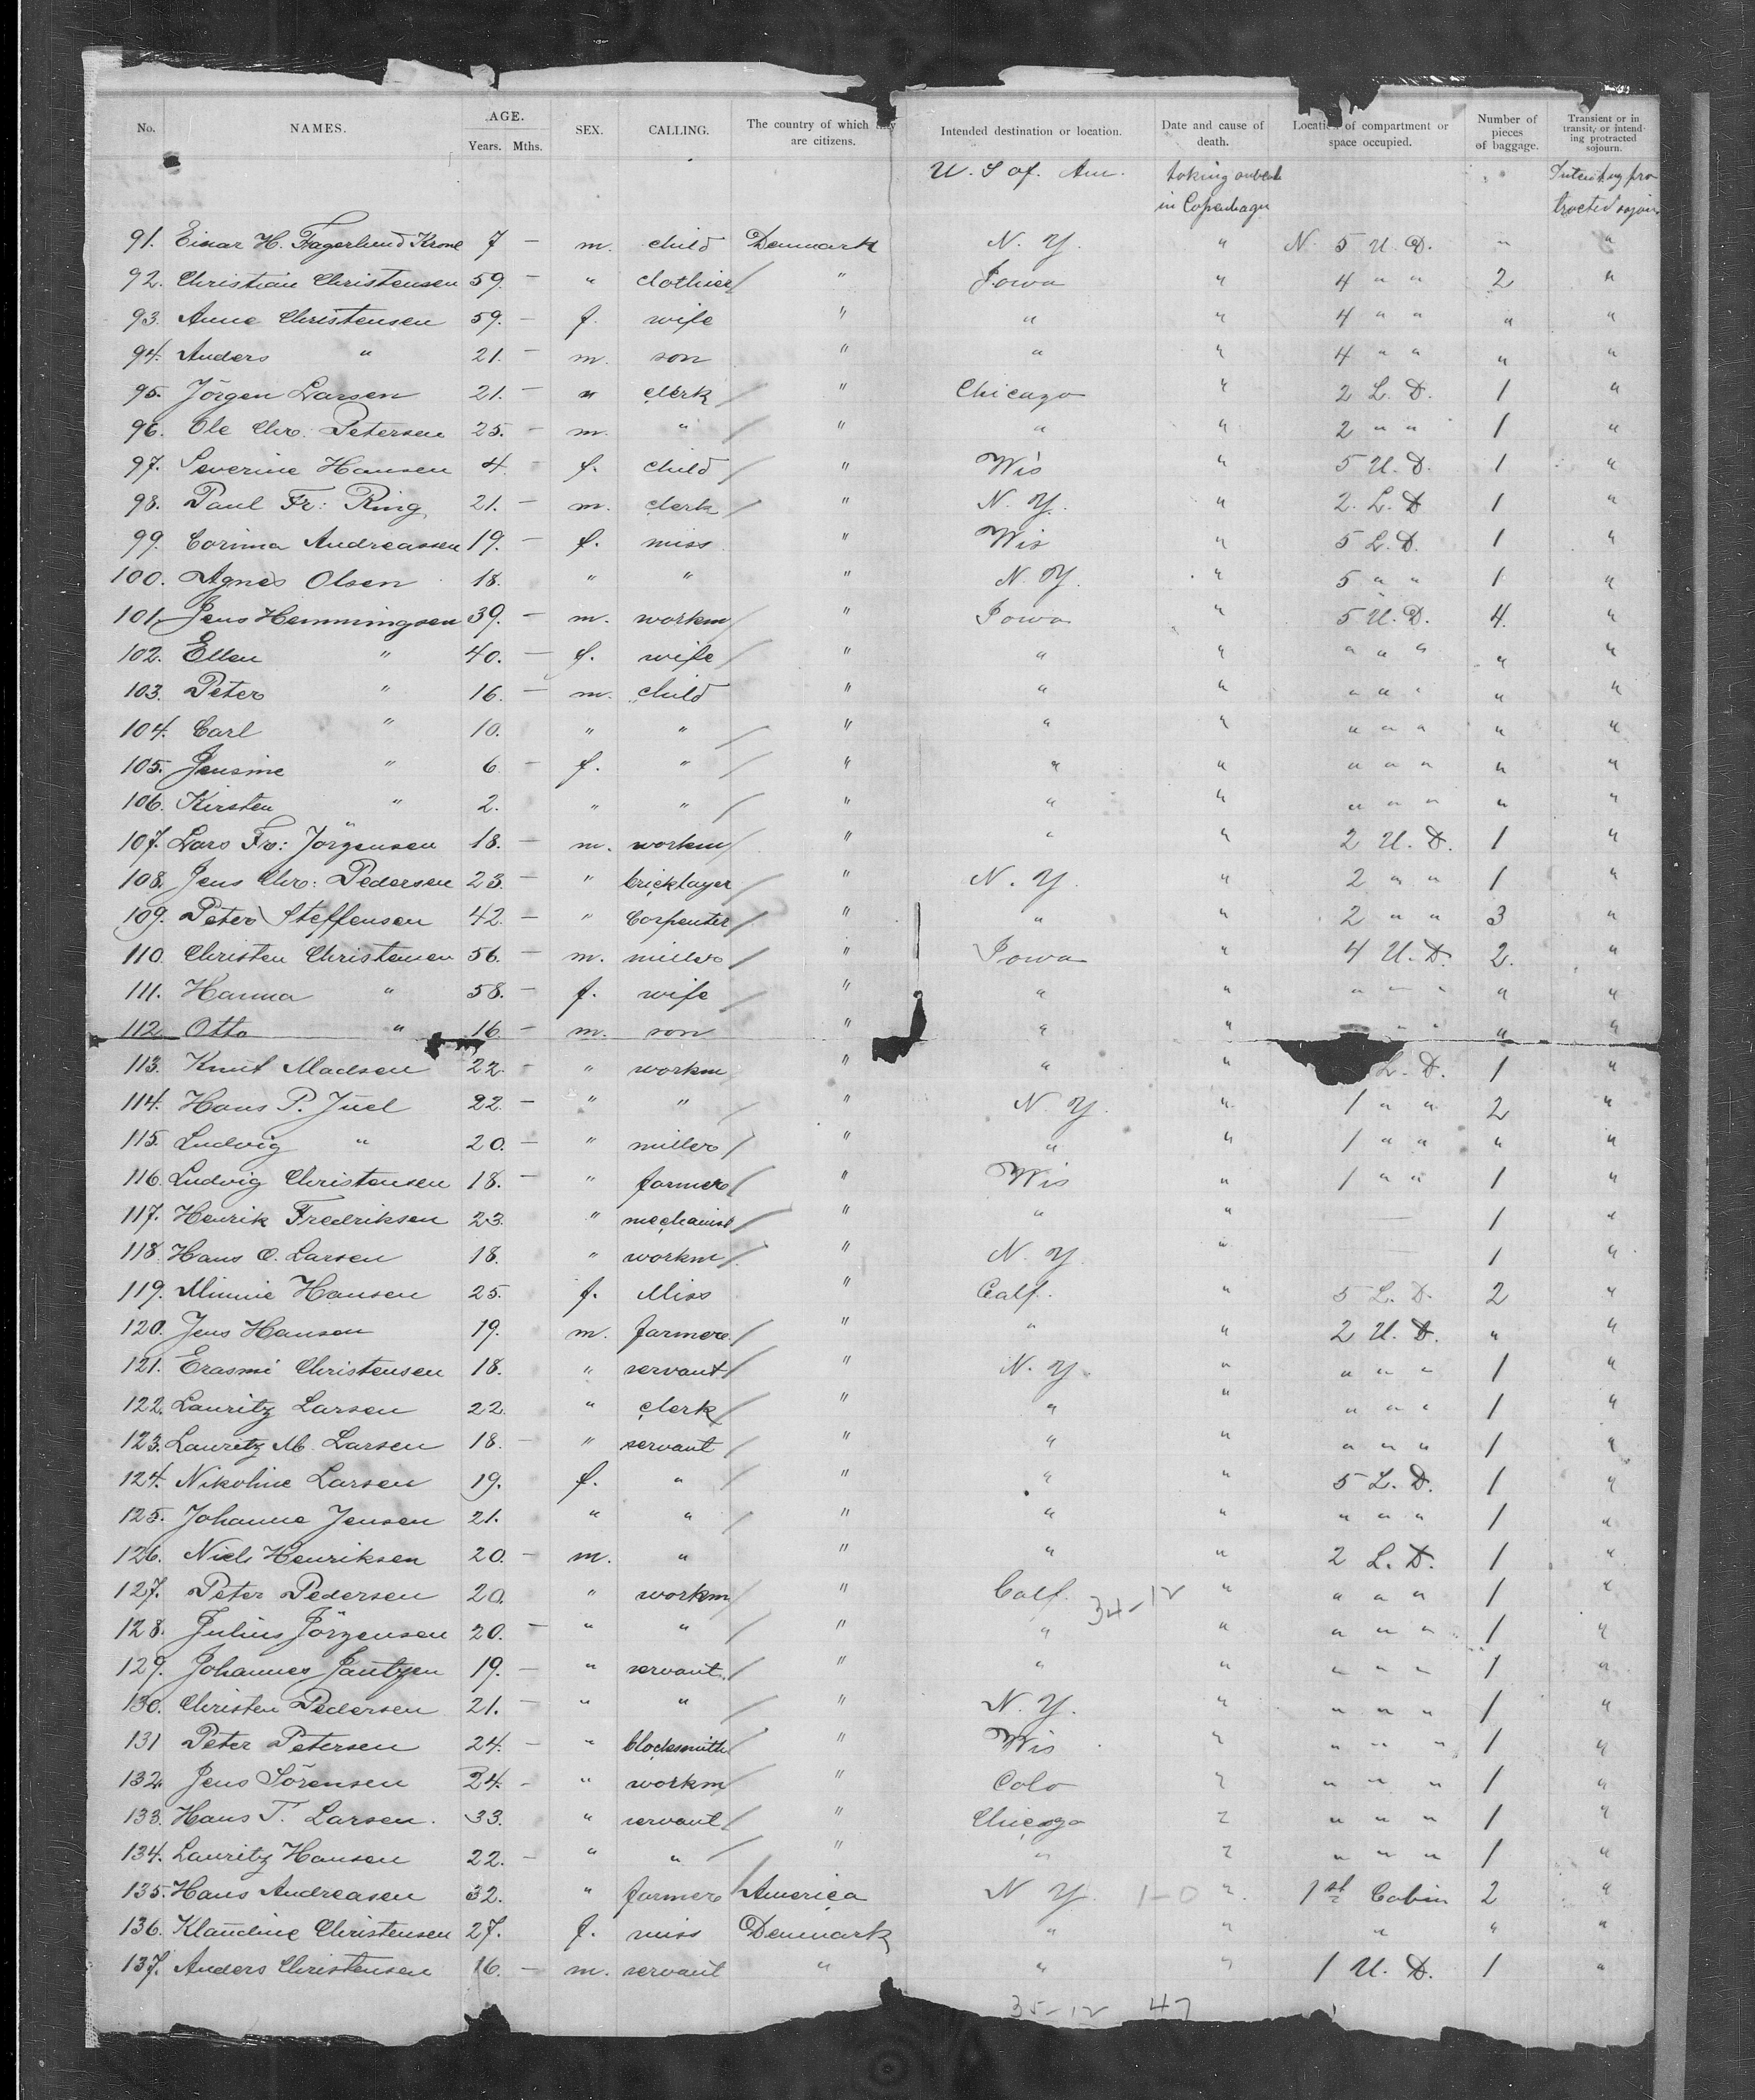 No. NAMES. AGE. Years. Mths. SEX. CALLING. The country of which they are citizens. Intended destination or location. Date and cause of death. Location of compartment or space occupied. Number of pieces of baggage. Transient or in transit, or intending protracted sojourn.
U. S of. Am. taking on board Intending pro-
in Copenhagen tracted sojourn
91. Einar H. Fagerlund Krone 7 — m. child Denmark N. Y. " N. 5 U. D. " "
92. Christian Christensen 59. — " clothier / " Iowa " 4 " " 2 "
93. Anne Christensen 59. — f. wife " " " 4 " " " "
94. Anders " 21. — m. son " " " 4 " " " "
95. Jörgen Larsen 21. — " clerk / " Chicago " 2 L. D. 1 "
96. Ole Chr. Petersen 25. — m. " / " " " 2 " " 1 "
97. Severine Hansen 4 - f. child / " Wis " 5 U. D. 1 "
98. Paul Fr: Ring 21. — m. clerk / " N. Y. " 2. L. D 1 "
99. Corinna Andreassen 19. — f. miss " Wis " 5 L. D. 1 "
100. Agnes Olsen 18. " " " N. Y. " 5 " " 1 "
101. Jens Hemmingsen 39. — m. workm / " Iowa " 5 U. D. 4. "
102. Ellen " 40. — f. wife / " " " " " " " "
103. Peter " 16. — m. child " " " " " " " "
104. Carl " 10. " " / " " " " " " " "
105. Jensine " 6 - f. " / " " " " " " " "
106. Kirsten " 2. " " / " " " " " " " "
107. Lars Fr: Jörgensen 18. — m. workm / " " " 2 U. D. 1 "
108. Jens Chr: Pedersen 23. — " bricklayer / " N. Y. " 2 " " 1 "
109. Peter Steffensen 42. — " Carpenter / " " " 2 " " 3 "
110. Christen Christensen 56. — m. miller / " Iowa " 4 U. D. 2. "
111. Hanna " 58. — f. wife / " " " " " " " "
112 Otto " 16 — m. son " " " " " " "
113. Knut Madsen 22. - " workm / " " " L. D. 1 "
114. Hans P. Juel 22. — " " / " N. Y. " 1 " " 2 "
115. Ludvig " 20. — " miller / " " " 1 " " " "
116. Ludvig Christensen 18. — " farmer / " Wis " 1 " " 1 "
117. Henrik Fredriksen 23. " mechanist / " " " — 1 "
118. Hans O. Larsen 18. " workm / " N. Y. " 1 "
119. Minnie Hansen 25. f. Miss " Calf. " 5 L. D. 2 "
120. Jens Hansen 19. m. farmer / " " " 2 U. D. " "
121. Erasmi Christensen 18. " servant / " N. Y. " " " " 1 "
122. Lauritz Larsen 22. " clerk / " " " " " " 1 "
123. Lauritz M. Larsen 18. — " servant / " " " " " " 1 "
124. Nikoline Larsen 19. f. " / " " " 5 L. D. 1 "
125. Johanne Jensen 21. " " / " " " " " " 1 "
126. Niels Henriksen 20. — m. " " " " 2 L. D. 1 "
127. Peter Pedersen 20. " workm / " Calf. 34-12 " " " " 1 "
128. Julius Jörgensen 20. — " " / " " " " " " 1 "
129. Johannes Jantzen 19. — " servant / " " " " " " 1 "
130. Christen Pedersen 21. — " " / " N. Y. " " " " 1 "
131 Peter Petersen 24. — " blacksmith / " Wis " " " " 1 "
132. Jens Sörensen 24. - " workm / " Colo " " " " 1 "
133. Hans T. Larsen. 33. " servant / " Chicago " " " " 1 "
134. Lauritz Hansen 22. — " " / " " " " " " 1 "
135. Hans Andreasen 32. " farmer / America N. Y. 1-0 " 1st Cabin 2 "
136. Klaudine Christensen 27. f. miss Denmark " " " " "
137. Anders Christensen 16. — m. servant " " " 1 U. D. 1 "
35-12 47